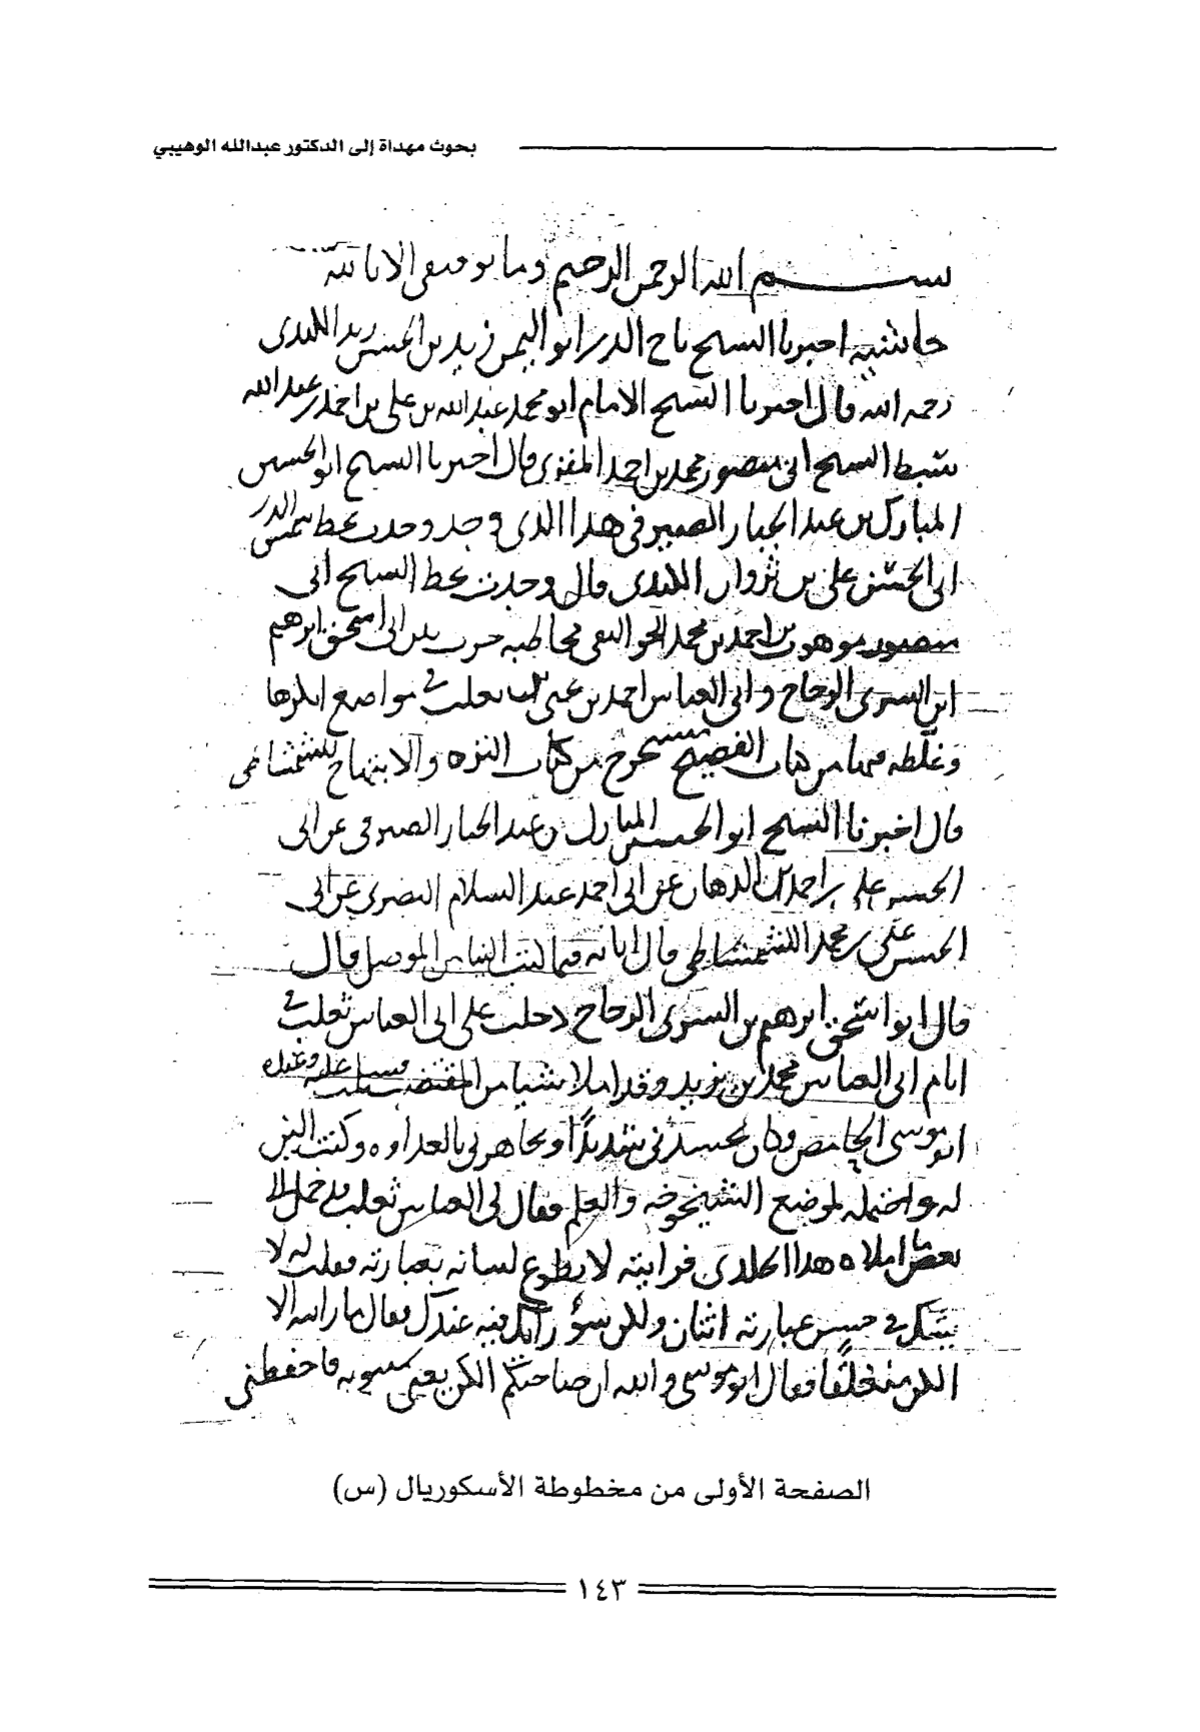 بحوث مهداة إلى الدكتور عبدالله الوهيبي
بسم الله الرحمن الرحيم وما توفيقي الا بالله
حاشية اخبرنا الشيخ تاج الدين ابو اليمن زيد بن الحسن بن زيد الكندي
رحمه الله قال اخبرنا الشيخ الامام ابو محمد عبد الله بن علي بن احمد بن عبد الله
سبط الشيخ ابي منصور محمد بن احمد المقرئ قال اخبرنا الشيخ ابو الحسين
المبارك بن عبد الجبار الصيرفي هذا الذي وجد وجدت بخط شمس الدين
ابي الحسن علي بن ثروان الكندي قال وجدت بخط الشيخ ابي
منصور موهوب بن احمد بن محمد الجواليقي مخاطبة جرت بين ابي اسحق ابرهيم
ابن السري الزجاج وابي العباس احمد بن يحيى ثعلب في مواضع انكرها
وغلطه فيها من كتاب الفصيح مستخرج من كتاب النزه والابتهاج للشمشاطي
قال اخبرنا الشيخ ابو الحسين المبارك بن عبد الجبار الصيرفي عن ابي
الحسن علي بن احمد بن الدهان عن ابي احمد عبد السلام البصري عن ابي
الحسن علي بن محمد الشمشاطي قال ابانه فيما كتبت الينا من الموصل قال
قال ابو اسحق ابرهيم بن السري الزجاج دخلت على ابي العباس ثعلب في
ايام ابي العباس محمد بن يزيد وقد املا شيا من المقتضب فسلمت عليه وعنده
ابو موسى الحامض وكان يحسدني شديدًا ويجاهرني بالعداوه وكنت الين
له واحتمله لموضع الشيخوخه والعلم فقال لي العباس ثعلب قد حمل الي
بعض ما املاه هذا الخلدي فرايته لا يطوع لسانه بعبارته فقلت له لا
يشك في حسن عبارته اثنان ولكن سوء رايك فيه عندك فقال ما رايته الا
الكن متغلقًا فقال ابو موسى والله ان صاحبكم الكن يعني سيبويه فاحفظني
الصفحة الأولى من مخطوطة الأسكوريال (س)
١٤٣